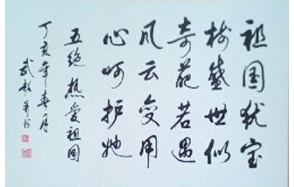 祖国犹宝
树盛世似
奇葩若遇
风云变用
心呵护她
五绝 热爱祖国
丁亥年春月
武